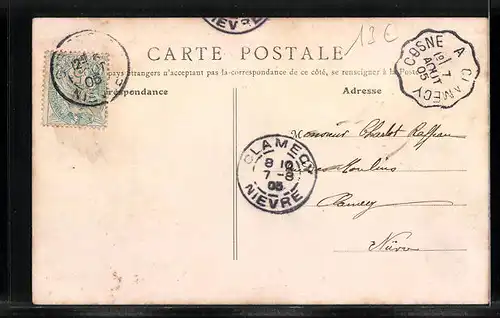 NIEVRE
13€
CARTE POSTALE
pays étrangers n'acceptant pas la correspondance de ce côté, se renseigner à la Poste
respondance
Adresse
05
NIEV
COSNE A CLAMECY
7
AOUT
05
CLAMECY
8 10
7-8
05
NIEVRE
Monsieur Charlot
Moulins
Clamecy
Nièvre